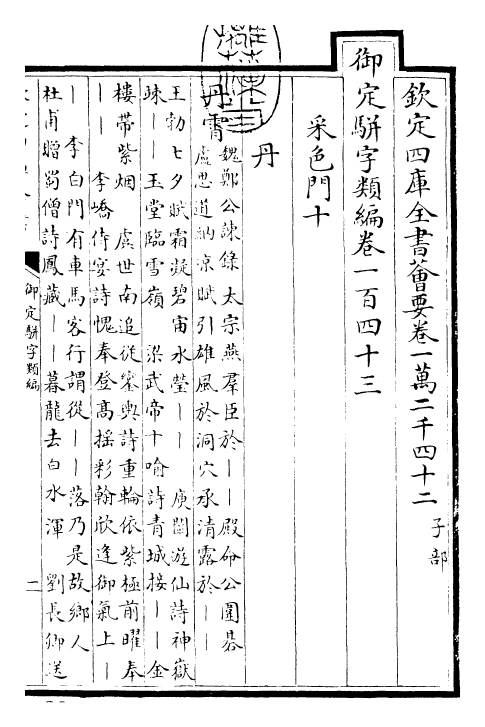 欽定四庫全書薈要卷一萬二千四十二 子部
御定駢字類編卷一百四十三
采色門十
丹
丹霄 魏鄭公諫錄太宗燕羣臣於丨丨殿命公圍棊
盧思道納涼賦引雄風於洞穴承清露於丨丨
王勃七夕賦霜凝碧宙水瑩丨丨 庾闡遊仙詩神嶽
竦丨丨玉堂臨雪嶺 梁武帝十喻詩青城接丨丨金
樓帶紫烟 虞世南追從鑾輿詩重輪依紫極前曜奉
丨丨 李嶠侍宴詩愧奉登髙摇彩翰欣逢御氣上丨
丨 李白門有車馬客行謂從丨丨落乃是故鄉人
杜甫贈蜀僧詩鳳藏丨丨暮龍去白水渾 劉長卿送
御定駢字類編
二